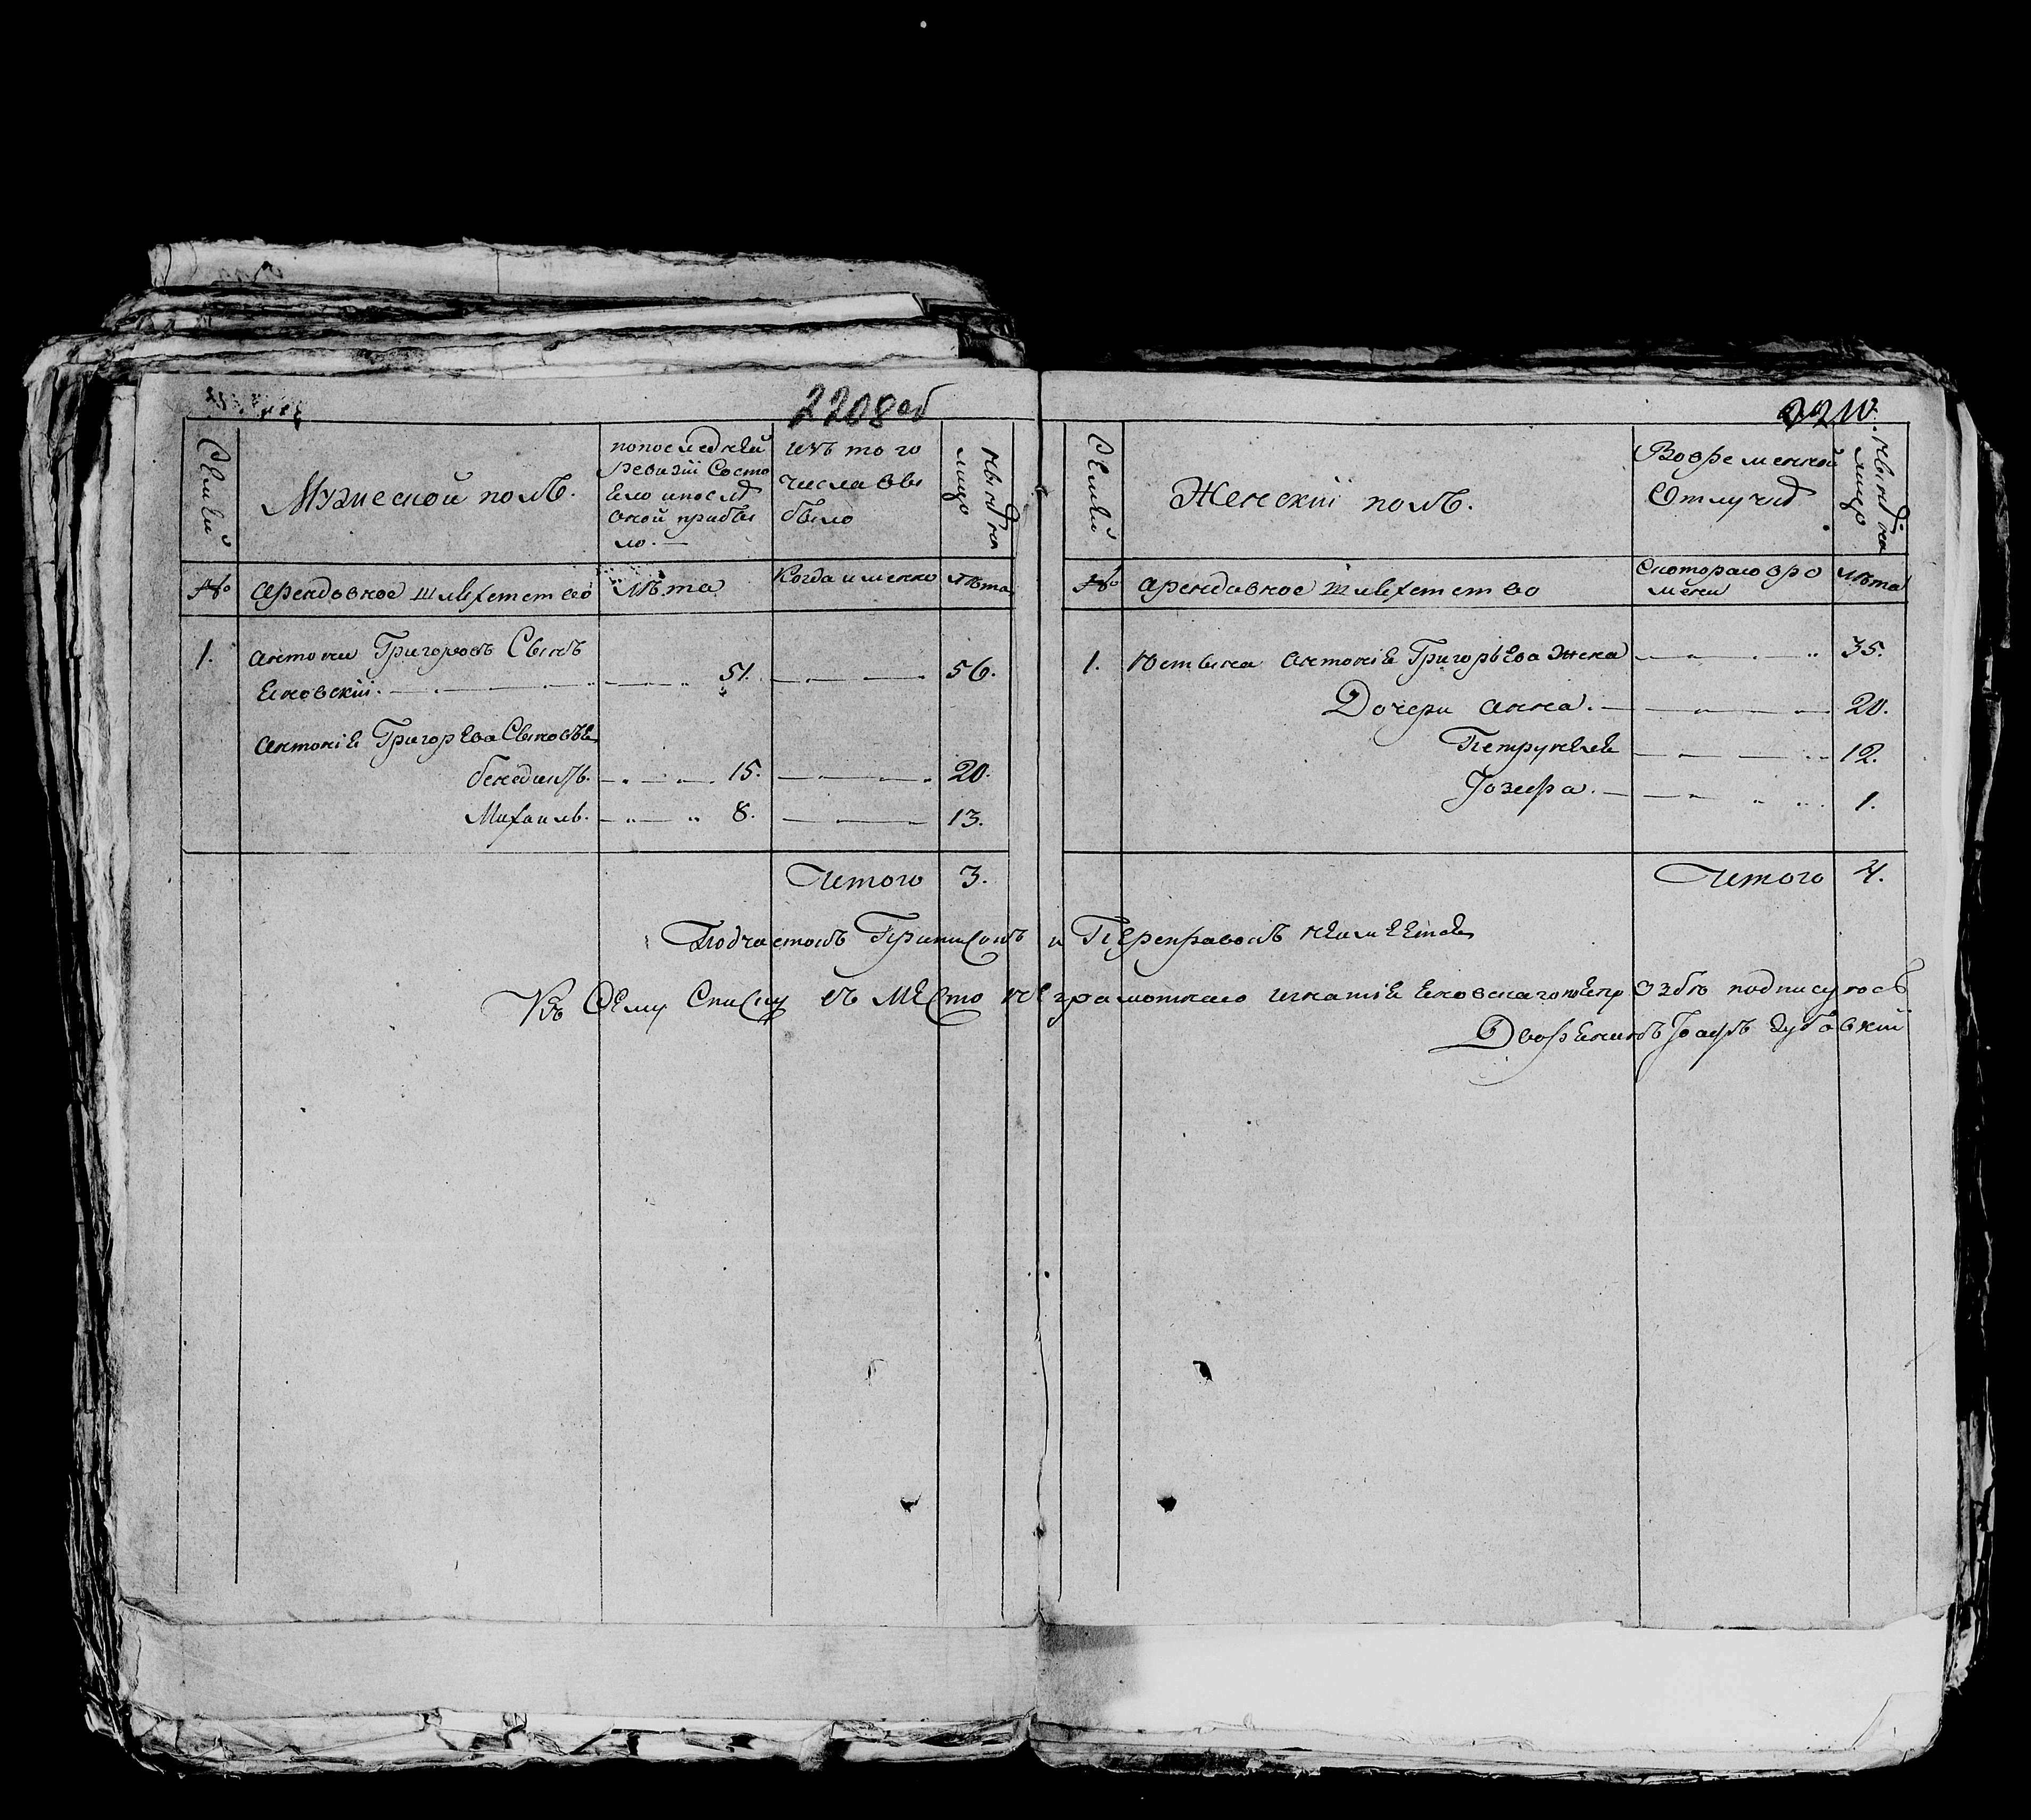 2208 об
Семьи
Мужеской полъ.
попоследней
ревизіи Состо
ело ипослѣ
оной прибы
ло. —
изъ того
числа вы
было
Ныне на
лицо
№
арендовное шляхетство
Лѣта
Когда именно
лѣта
1.
антони Григоровъ Сынъ
Енковскій.
51.
56.
антоніе Григорева Сыновье
бенедиктъ.
15.
20.
Михаилъ.
8.
13.
Итого
3.
2210.
Семьи
Женскій полъ.
Вовременной
Отлучке
Ныне на
лицо
№
арендовное шляхетство
Скотораго вре
мени
лѣта
1.
антоніе Григорьева Жена
35.
Дочери анна.
20.
Петрунеле
12.
Іозефа.
1.
Итого
4.
Подчистокъ Приписокъ и Переправокъ неимеется
Къ Сему Списку въ Место неграмотнаго игнатіе Енковскаго подписуюсь
Дворенинъ Іозефъ